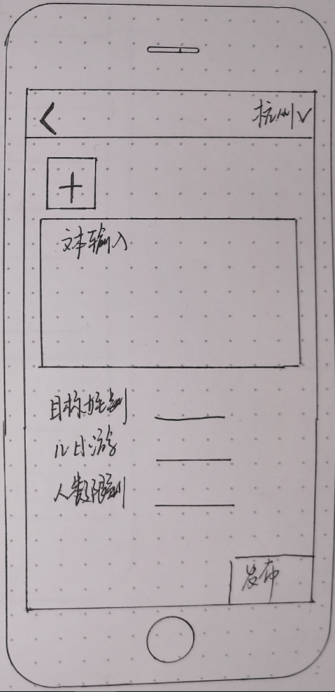 杭州
文本输入
目标性别
几日游
人数限制
发布